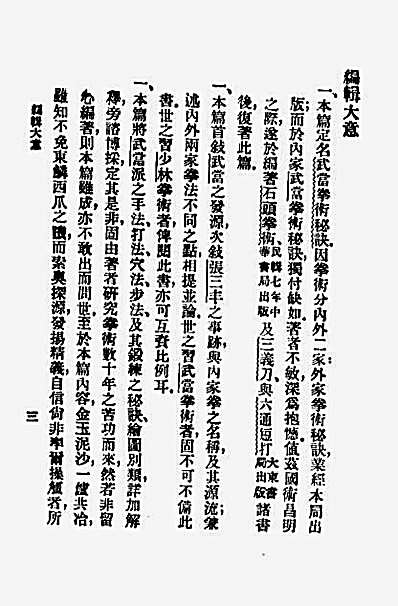 編輯大意
一、本篇定名武當拳術秘訣因拳術分內外二家外家拳術秘訣業經本局出
版而於內家武當拳術秘訣獨付缺如著者不敏深爲抱憾値茲國術昌明
之際遂於編著石頭拳術民國七年中華書局出版及三義刀與六通短打大東書局出版諸書
後復著此篇
一、本篇首敍武當之發源次敍張三丰之事跡與內家拳之名稱及其源流兼
述內外兩家拳法不同之點相提並論世之習武當拳術者固不可不備此
書世之習少林拳術者俾閱此書亦可互資比例耳
一、本篇將武當派之手法打法穴法步法及其鍛練之秘訣繪圖別類詳加解
釋旁諮博採定其是非固由著者研究拳術數十年之苦功而來然若非留
心編著則本篇雖成亦不敢出而問世至於本篇內容金玉泥沙一鑪共冶
雖知不免東鱗西爪之譏而索奧探源發揚精義自信尙非率爾操觚者所
編輯大意
三